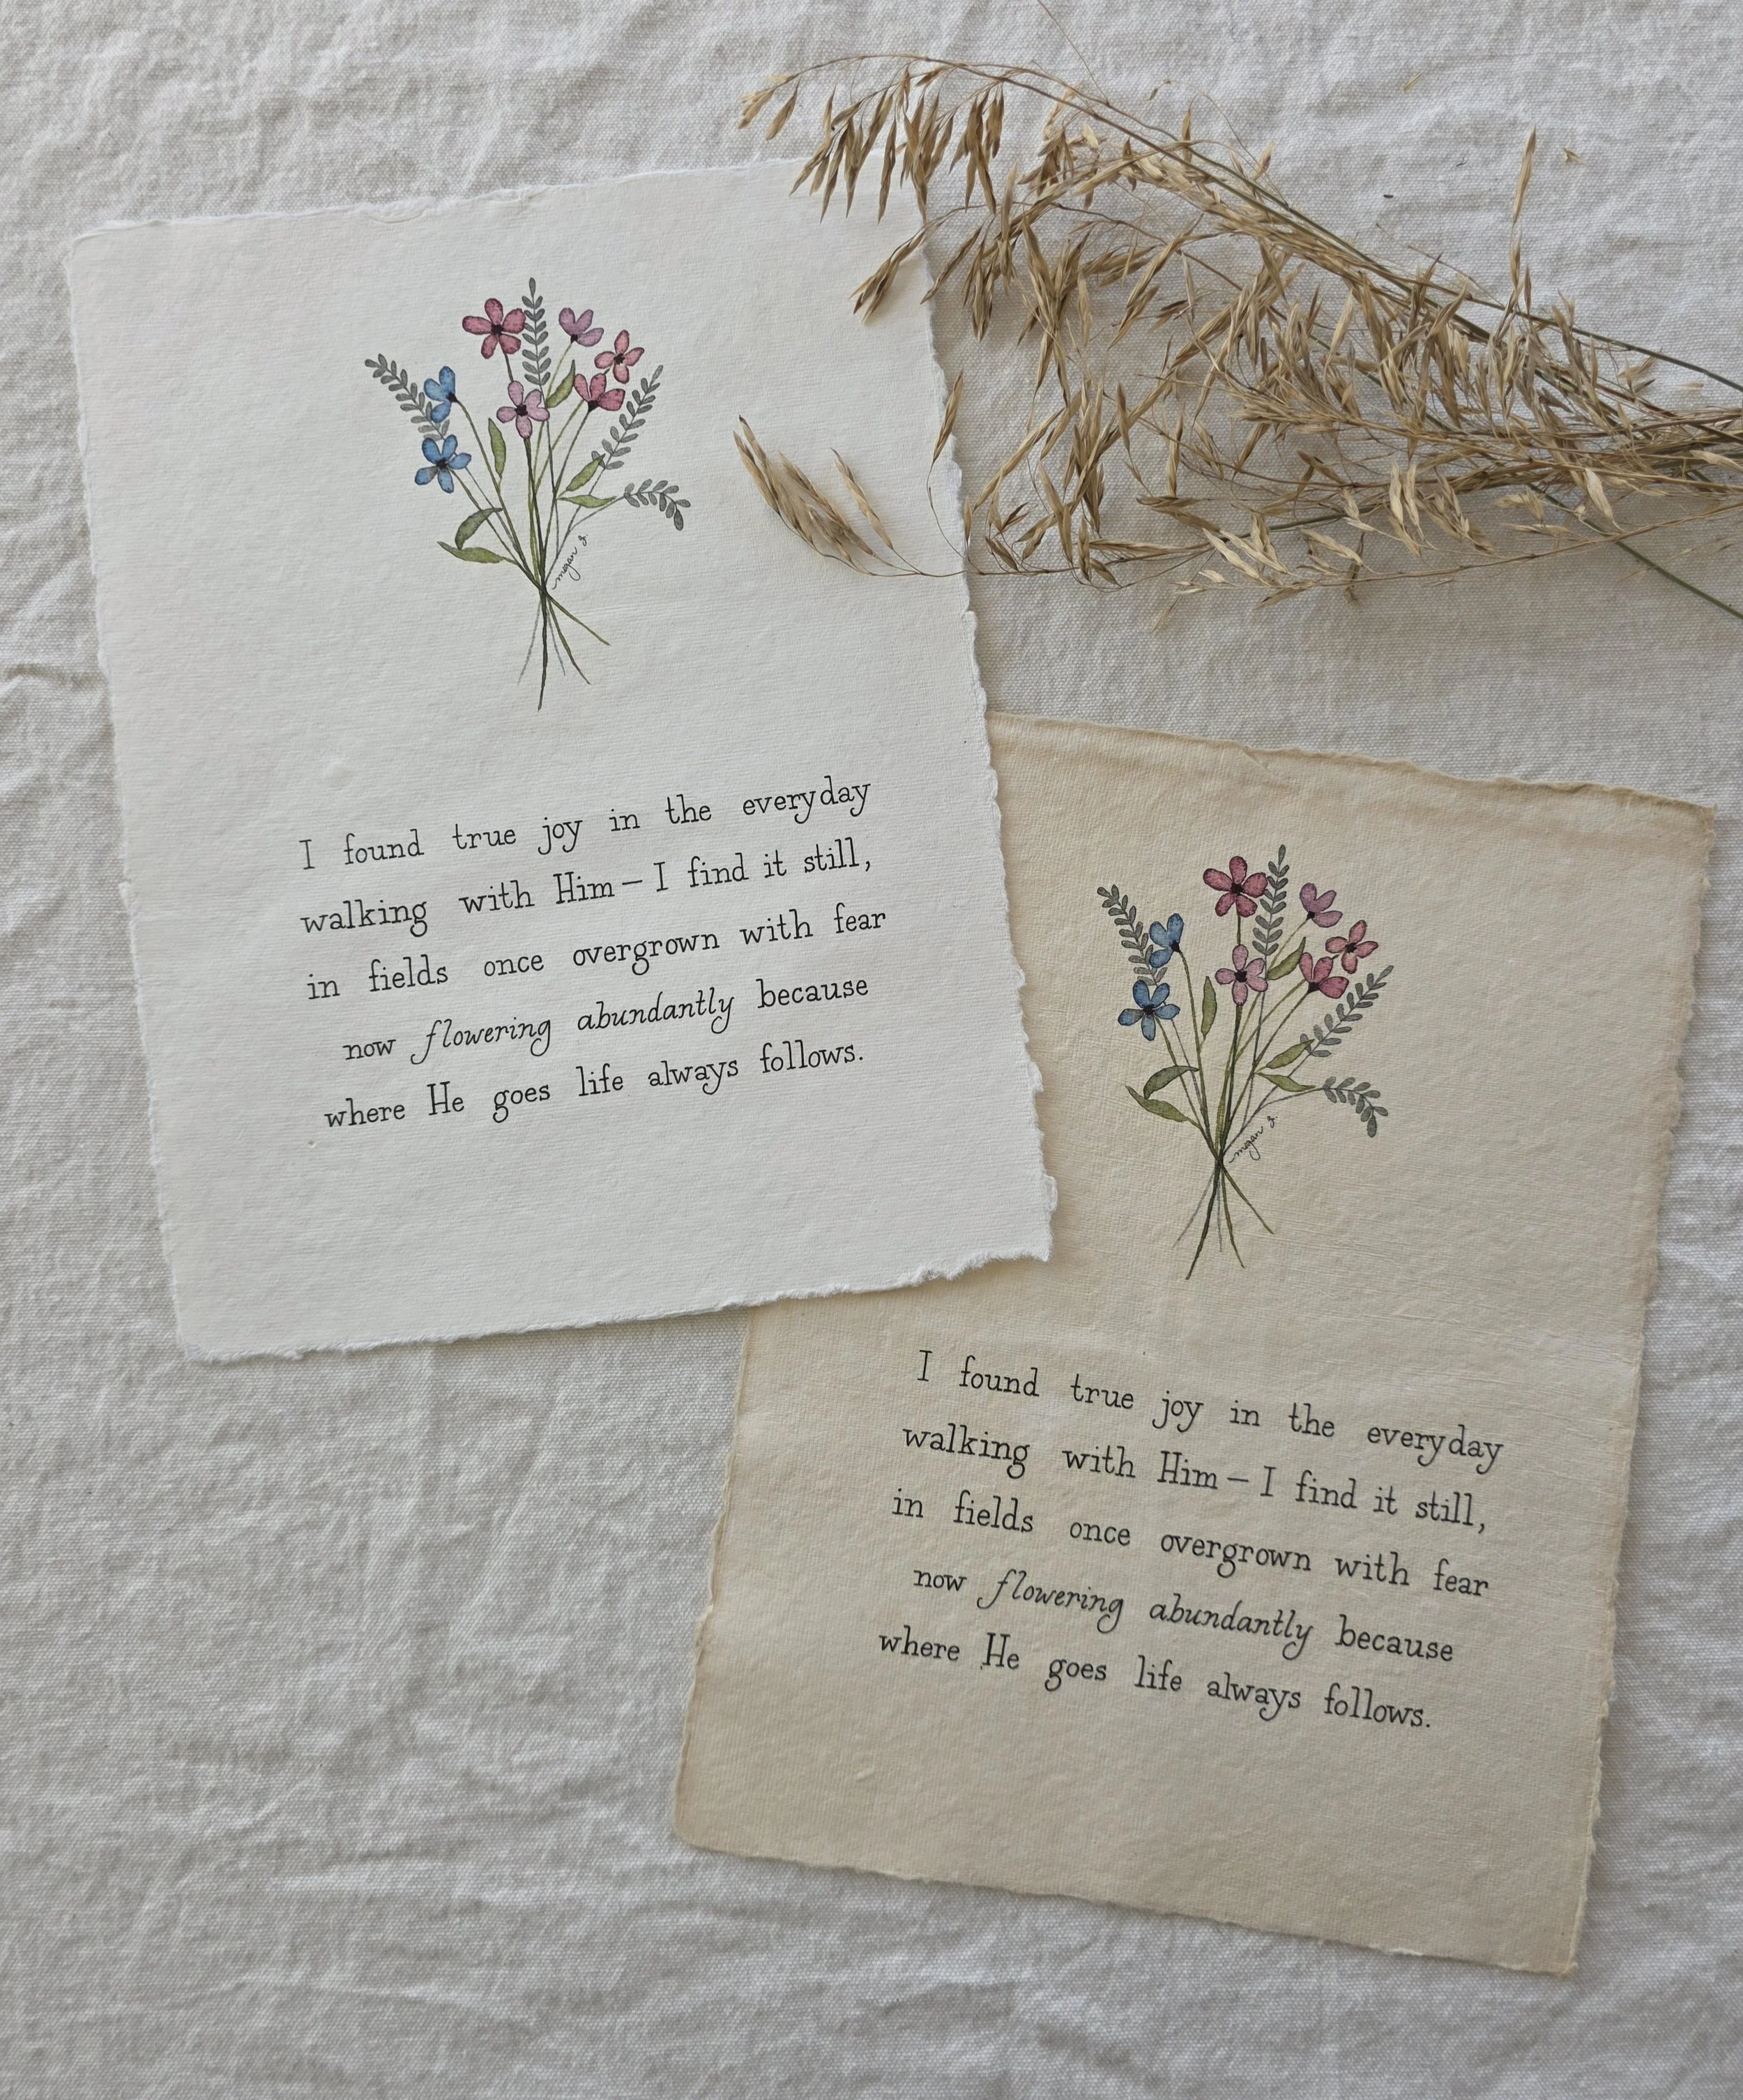 megan &
I found true joy in the everyday
walking with Him – I find it still,
in fields once overgrown with fear
now flowering abundantly because
where He goes life always follows.
megan &
I found true joy in the everyday
walking with Him – I find it still,
in fields once overgrown with fear
now flowering abundantly because
where He goes life always follows.